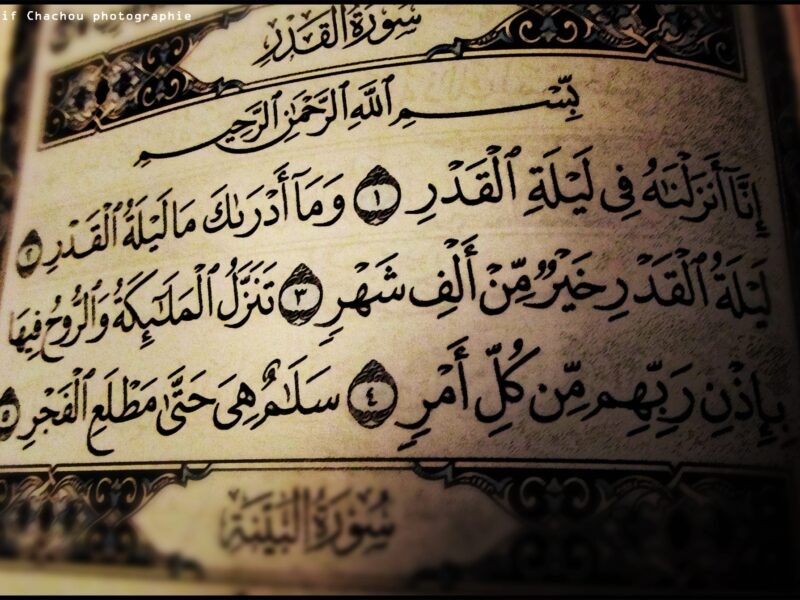 if Chachou photographie
سُورَةُ القَدْرِ
بِسْمِ ٱللَّهِ ٱلرَّحْمَٰنِ ٱلرَّحِيمِ
إِنَّآ أَنزَلْنَٰهُ فِى لَيْلَةِ ٱلْقَدْرِ ١ وَمَآ أَدْرَىٰكَ مَا لَيْلَةُ ٱلْقَدْرِ ٢
لَيْلَةُ ٱلْقَدْرِ خَيْرٌ مِّنْ أَلْفِ شَهْرٍ ٣ تَنَزَّلُ ٱلْمَلَٰٓئِكَةُ وَٱلرُّوحُ فِيهَا
بِإِذْنِ رَبِّهِم مِّن كُلِّ أَمْرٍ ٤ سَلَٰمٌ هِىَ حَتَّىٰ مَطْلَعِ ٱلْفَجْرِ ٥
سُورَةُ البَيِّنَةِ